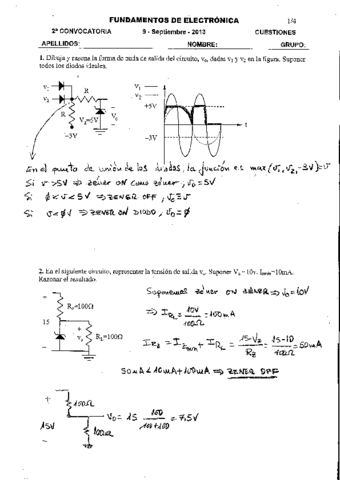 FUNDAMENTOS DE ELECTRÓNICA 1/4
2ª CONVOCATORIA 9 - Septiembre - 2013 CUESTIONES
APELLIDOS: NOMBRE: GRUPO:
1. Dibuja y razona la forma de onda de salida del circuito, v₀, dadas v₁ y v₂ en la figura. Suponer
todos los diodos ideales.
v₁
v₂
R
R
V_z=5V
v₀
-3V
v₁
v₂
+5V
-3V
t
En el punto de unión de los diodos, la función es max(v₁, v₂, -3V)=v
Si v>5V ⇒ zéner ON como zéner, v₀=5V
Si ∅<v<5V ⇒ ZENER OFF, v₀=v
Si v<∅V ⇒ ZENER ON DIODO, v₀=∅
2. En el siguiente circuito, representar la tensión de salida v₀. Suponer V_z = 10v. I_zmin=10mA.
Razonar el resultado.
+
R_z=100Ω
15
+
v₀
-
R_L=100Ω
-
Suponemos zéner ON ZENER ⇒ v₀=10V
⇒ I_RL = 10V/100Ω = 100mA
I_RZ = I_zmin + I_RL = (15-V_z)/R_z = (15-10)/100Ω = 50mA
50mA < 10mA+100mA ⇒ ZENER OFF
+
100Ω
15V
v₀ = 15 100/(100+100) = 7,5V
100Ω
-